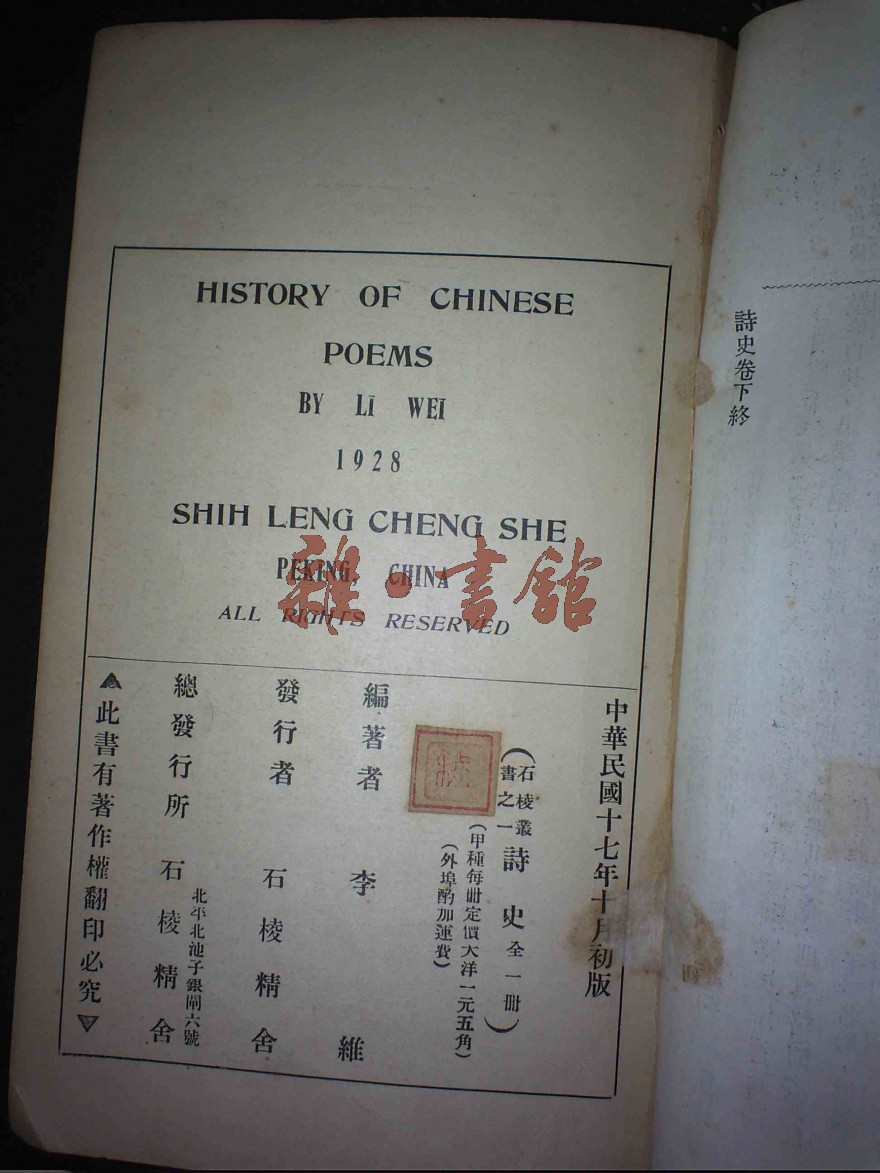 HISTORY OF CHINESE
POEMS
BY LĪ WEĪ
1928
SHIH LENG CHENG SHE
PEKING, CHINA
ALL RIGHTS RESERVED
雜·書館
中華民國十七年十月初版
(石棱叢書之一)
詩史全一冊
(甲種每冊定價大洋一元五角)
(外埠酌加運費)
編著者 李維
發行者 石棱精舍
北平北池子銀閘六號
總發行所 石棱精舍
▲此書有著作權翻印必究▼
詩史卷下終